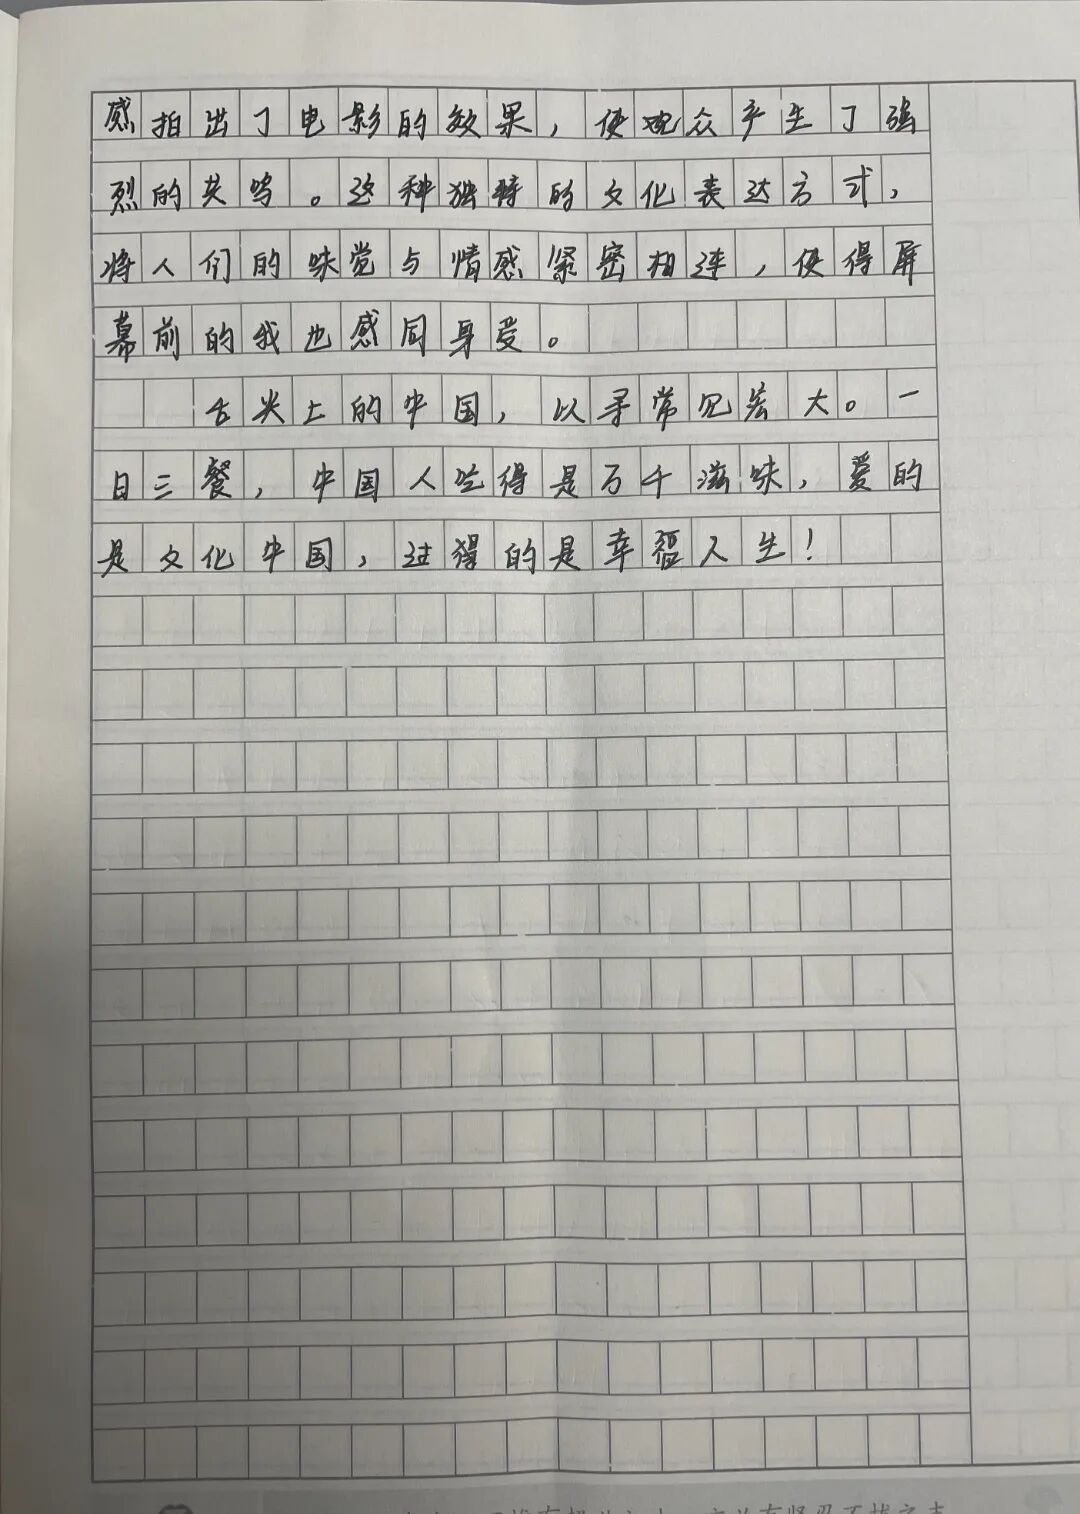 感拍出了电影的效果，使观众产生了强
烈的共鸣。这种独特的文化表达方式，
将人们的味觉与情感紧密相连，使得屏
幕前的我也感同身受。
舌尖上的中国，以寻常见宏大。一
日三餐，中国人吃得是万千滋味，爱的
是文化中国，过得的是幸福人生！